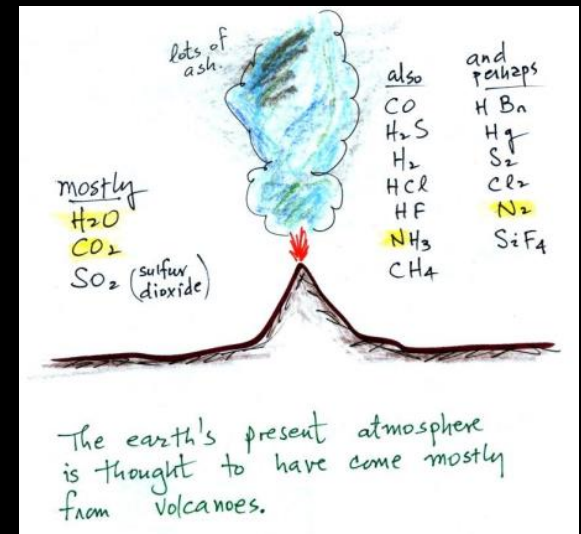 lots of
ash.
mostly
H2O
CO2
SO2 (sulfur dioxide)
also
CO
H2S
H2
HCl
HF
NH3
CH4
and
perhaps
HBr
Hg
S2
Cl2
N2
SiF4
The earth's present atmosphere
is thought to have come mostly
from volcanoes.